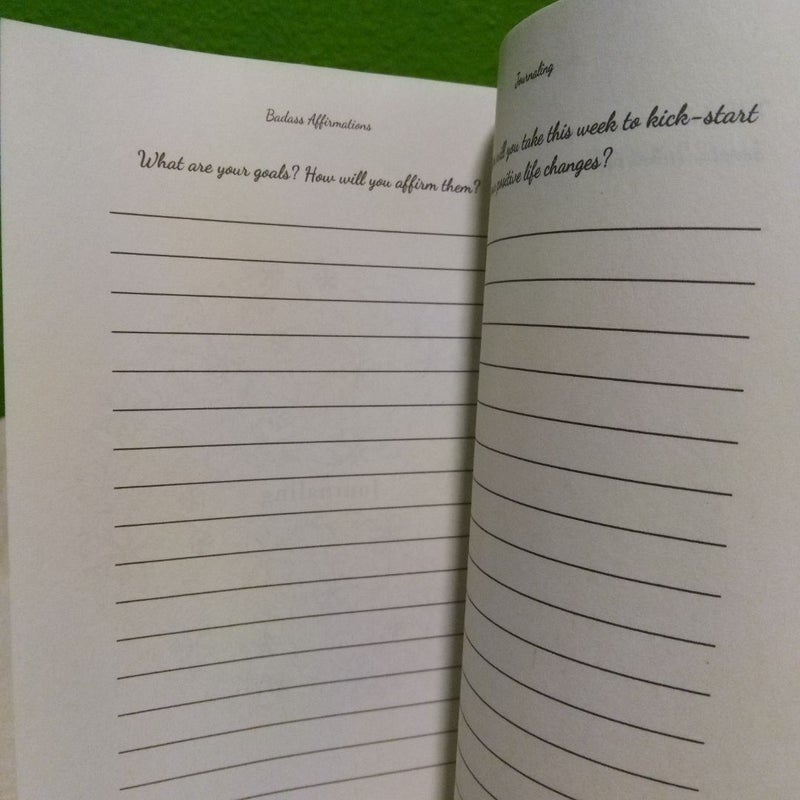 Badass Affirmations
What are your goals? How will you affirm them?
Journaling
will you take this week to kick-start
positive life changes?
Journaling